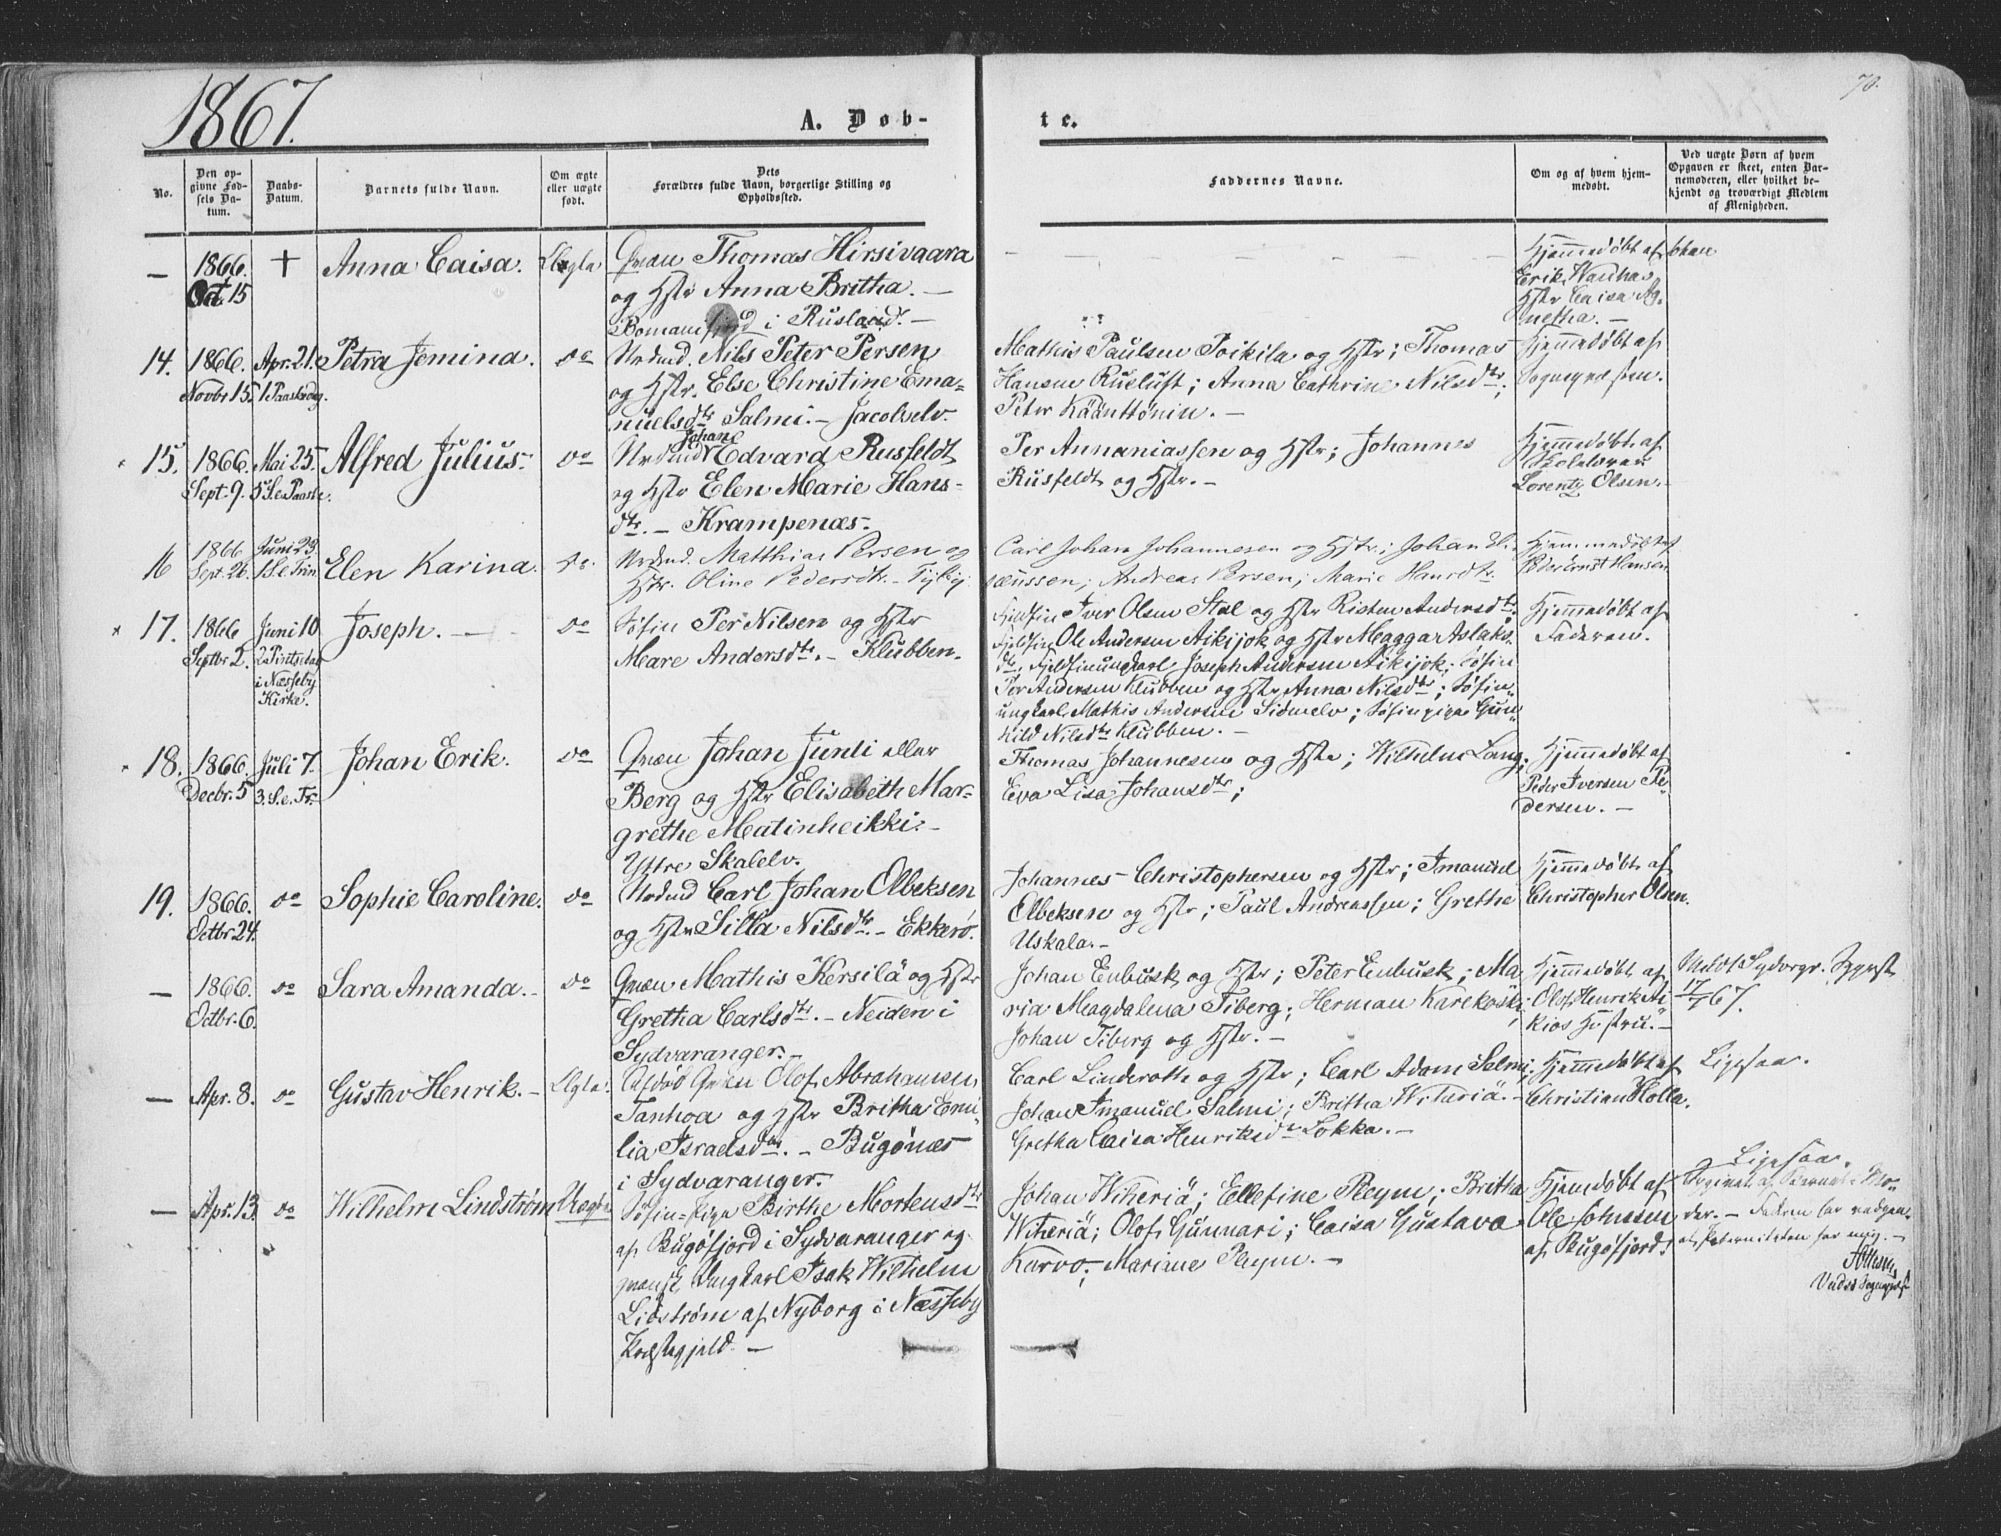 1867.
70.
A. Døb-
te.
No.
Den op-
givne Fød-
sels Da-
tum.
Daabs-
Datum.
Barnets fulde Navn.
Om ægte
eller uægte
født.
Dets
Forældres fulde Navn, borgerlige Stilling og
Opholdssted.
Faddernes Navne.
Om og af hvem hjem-
medøbt.
Ved uægte Børn af hvem
Opgaven er skeet, enten Bar-
nemoderen, eller hvilket be-
kjendt og troværdigt Medlem
af Menigheden.
—
1866.
Oct. 15
+
Anna Caisa.
Ægte
Qvæn Thomas Hirsivaara
og Hstr Anna Britha. —
Bomanifjord i Rusland. —
Hjemmedøbt af Johan
Erik Wanha
Hstr Caisa Ag-
netha. —
14.
1866.
Novbr 15.
Apr. 21.
1 Paaskedag.
Petra Jemina.
do
Nrdmd. Nils Peter Persen
og Hstr. Else Christine Ema-
nuelsdtr Salmi. — Jacobselv.
Mathis Paulsen Poikila og Hstr; Thomas
Hansen Rusluft; Anna Cathrine Nilsdtr;
Peter Käänttönin. —
Hjemmedøbt af
Sognepræsten.
15.
1866
Sept. 9.
Mai 25.
5 S. e. Paaske.
Alfred Julius.
do
Johan
Nrdmd Edvard Rusfeldt
og Hstr Elen Marie Hans-
dtr. — Krampenæs.
Per Annaniassen og Hstr; Johannes
Rusfeldt og Hstr. —
Hjemmedøbt af
Skolelærer
Lorentz Olsen. —
16
1866
Sept. 26.
Juni 23.
1 S. e. Trin.
Elen Karina.
do.
Nrdmd. Matthias Persen og
Hstr. Oline Pedersdtr —
Carl Johan Johannesen og Hstr; Johan Eli-
sæussen; Andreas Persen; Marie Hansdtr.
Hjemmedøbt af
Peder Ernst Hansen
17.
1866
Septbr 2.
Juni 10
2 Pintsedag
i Næsseby
Kirke.
Joseph. —
do
Søfin Per Nilsen og Hstr
Mare Andersdtr. — Klubben.
Fjeldfin Iver Olsen Stal og Hstr Risten Andersdtr;
Fjeldfin Ole Andersen Aikijok og Hstr Maggar Aslaks-
dtr; Fjeldfinungkarl Joseph Andersen Aikijok; Søfin
Per Andersen Klubben og Hstr Anna Nilsdtr; Søfin
ungkarl Mathis Andersen Sidnelv; Søfinpige Gun-
hild Nilsdtr Klubben. —
Hjemmedøbt af
Faderen.
18.
1866.
Decbr. 5
Juli 7.
3. S. e. Tr.
Johan Erik.
do
Qvæn Johan Junti eller
Berg og Hstr Elisabeth Mar-
grethe Matinheikki. —
Yttre Skalelv.
Thomas Johannesen og Hstr; Wilhelm Lang;
Eva Lisa Johansdtr;
Hjemmedøbt af
Peder Iversen Pe-
dersen. —
19.
1866.
Octbr. 24.
do
Sophie Caroline.
do
Nrdmd Carl Johan Olbeksen
og Hstr Silla Nilsdtr. — Ekkerø.
Johannes Christophersen og Hstr; Imanuel
Olbeksen og Hstr; Paul Andreassen; Grethe
Uskala. —
Hjemmedøbt af
Christopher Olsen.
—
1866.
Octbr. 6.
do
Sara Amanda. —
do
Qvæn Mathis Kersilä og Hstr
Gretha Carlsdtr. — Neiden i
Sydvaranger. —
Johan Enbusk og Hstr; Peter Enbusk; Ma-
ria Magdalena Tiberg; Herman Karekoski;
Johan Tiberg og Hstr. —
Hjemmedøbt af
Olof Henrik Ai-
kios Hustru. —
Meldt Sydvrgr. Sgprst
17/7 67.
—
Apr. 8.
do
Gustav Henrik. —
Ægte.
Afdød Qvæn Olof Abrahamsen
Tanhoa og Hstr Britha Emi-
lia Israelsdtr. — Bugønæs
i Sydvaranger.
Carl Linderoth og Hstr; Carl Adam Salmi;
Johan Imanuel Salmi; Britha Wiluriä. —
Gretha Caisa Henriksdtr Lokka. —
Hjemmedøbt af
Christian Holla.
Ligesaa.
—
Apr. 13.
do
Wilhelm Lindstrøm
Uægte
Søfin-Pige Birthe Mortensdtr
af Bugøfjord i Sydvaranger og
qvænsk Ungkarl Isak Wilhelm
Lidstrøm af Nyborg i Næsseby
Præstegjeld. —
Johan Wikeriä; Ellefine Pleym; Britha
Wikeriä; Olof Gunnari; Caisa Gustava
Kurvo; Mariane Pleym. —
Hjemdøbt af
Ole Johnsen
af Bugøfjord.
Ligesaa.
Opgivet af Barnets Mo-
der. — Faderen har vedgaa-
et Paterniteten for mig. —